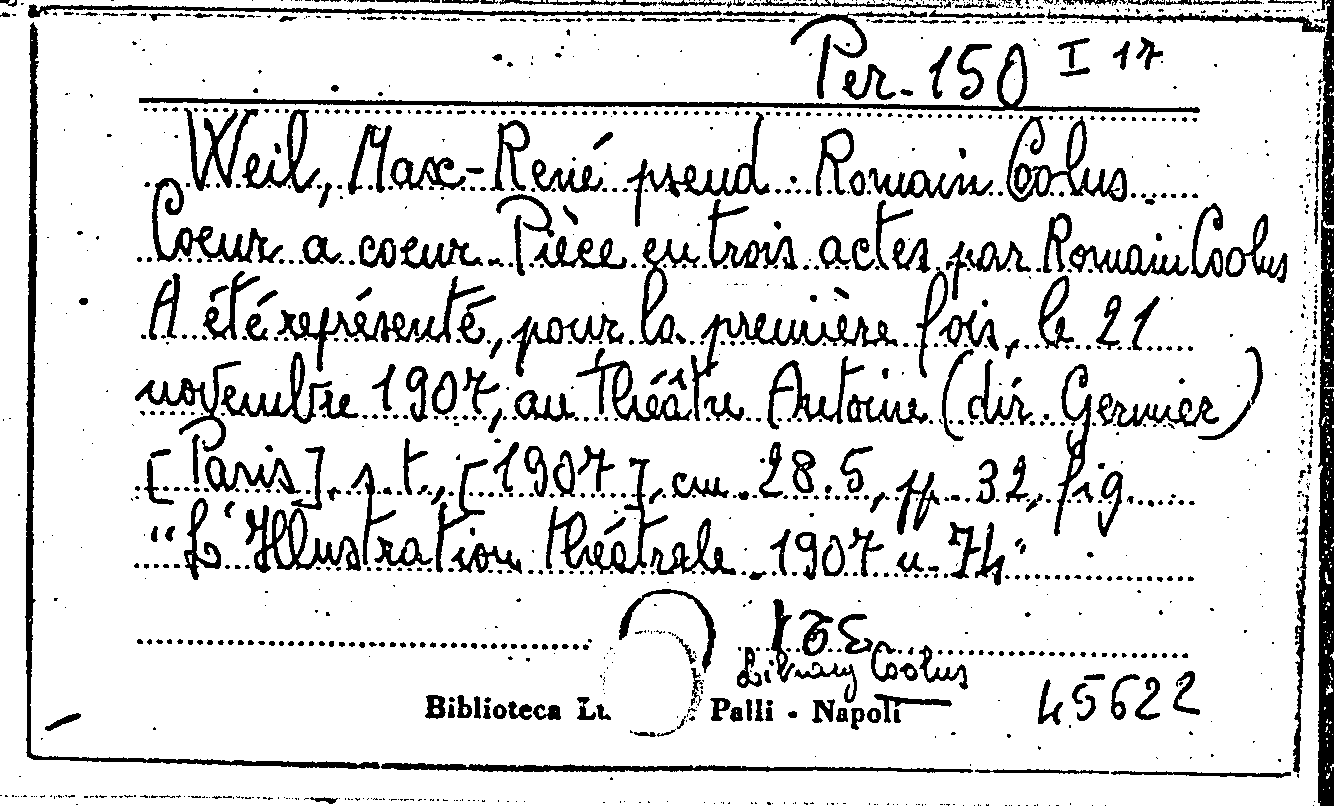 Per. 150 I 17
Weil, Max-René pseud. Romain Coolus
Coeur a coeur. Pièce en trois actes par Romain Coolus
A été représenté, pour la première fois, le 21
novembre 1907, au théâtre Antoine (dir. Germier)
[Paris], s.t., [1907], cm. 28.5, pp. 32, fig.
"L'Illustration théatrale. 1907 n. 74"
Coolus
Biblioteca Palli - Napoli
45622